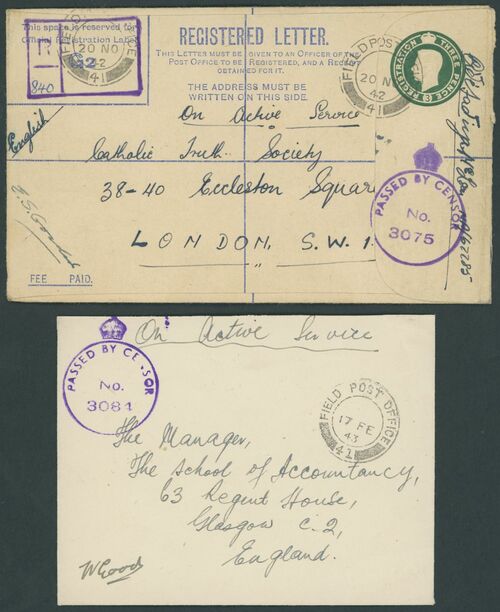 This space is reserved for
Official Registration Label
R
G2
840
FIELD POST OFFICE
20 NO
42
41
REGISTERED LETTER.
THIS LETTER MUST BE GIVEN TO AN OFFICER OF THE
POST OFFICE TO BE REGISTERED, AND A RECEIPT
OBTAINED FOR IT.
THE ADDRESS MUST BE
WRITTEN ON THIS SIDE.
FIELD POST OFFICE
20 NO
42
41
REGISTRATION THREE PENCE 3
English
On Active Service
Catholic Truth Society
38-40 Eccleston Square
LONDON. S.W.1.
FEE PAID.
PASSED BY CENSOR
No.
3075
On Active Service
PASSED BY CENSOR
No.
3084
FIELD POST OFFICE
17 FE
43
41
The Manager,
The School of Accountancy,
63 Regent House,
Glasgow C.2,
England.
WGood